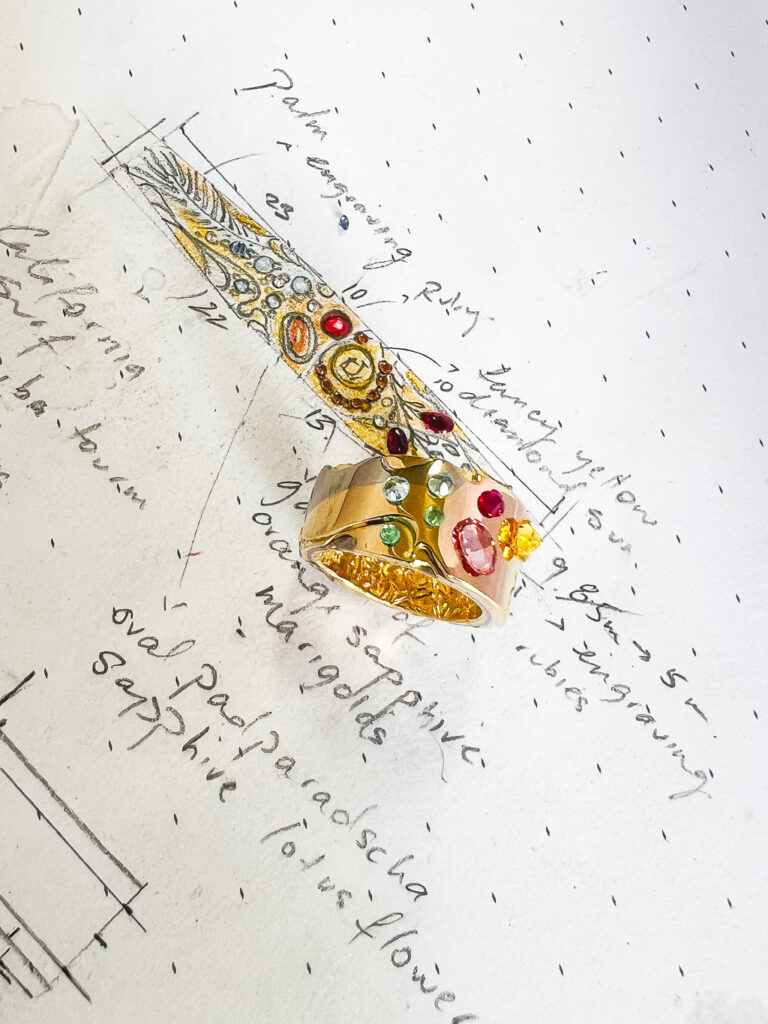 Palm
+ engraving
23
22
10
Ruby
California
Surf
tourm
fancy yellow
10 diamond sun
13
orange sapphire
of
marigolds
9.85m → 15m
→ engraving
rubies
oval padparadscha
sapphire lotus flower